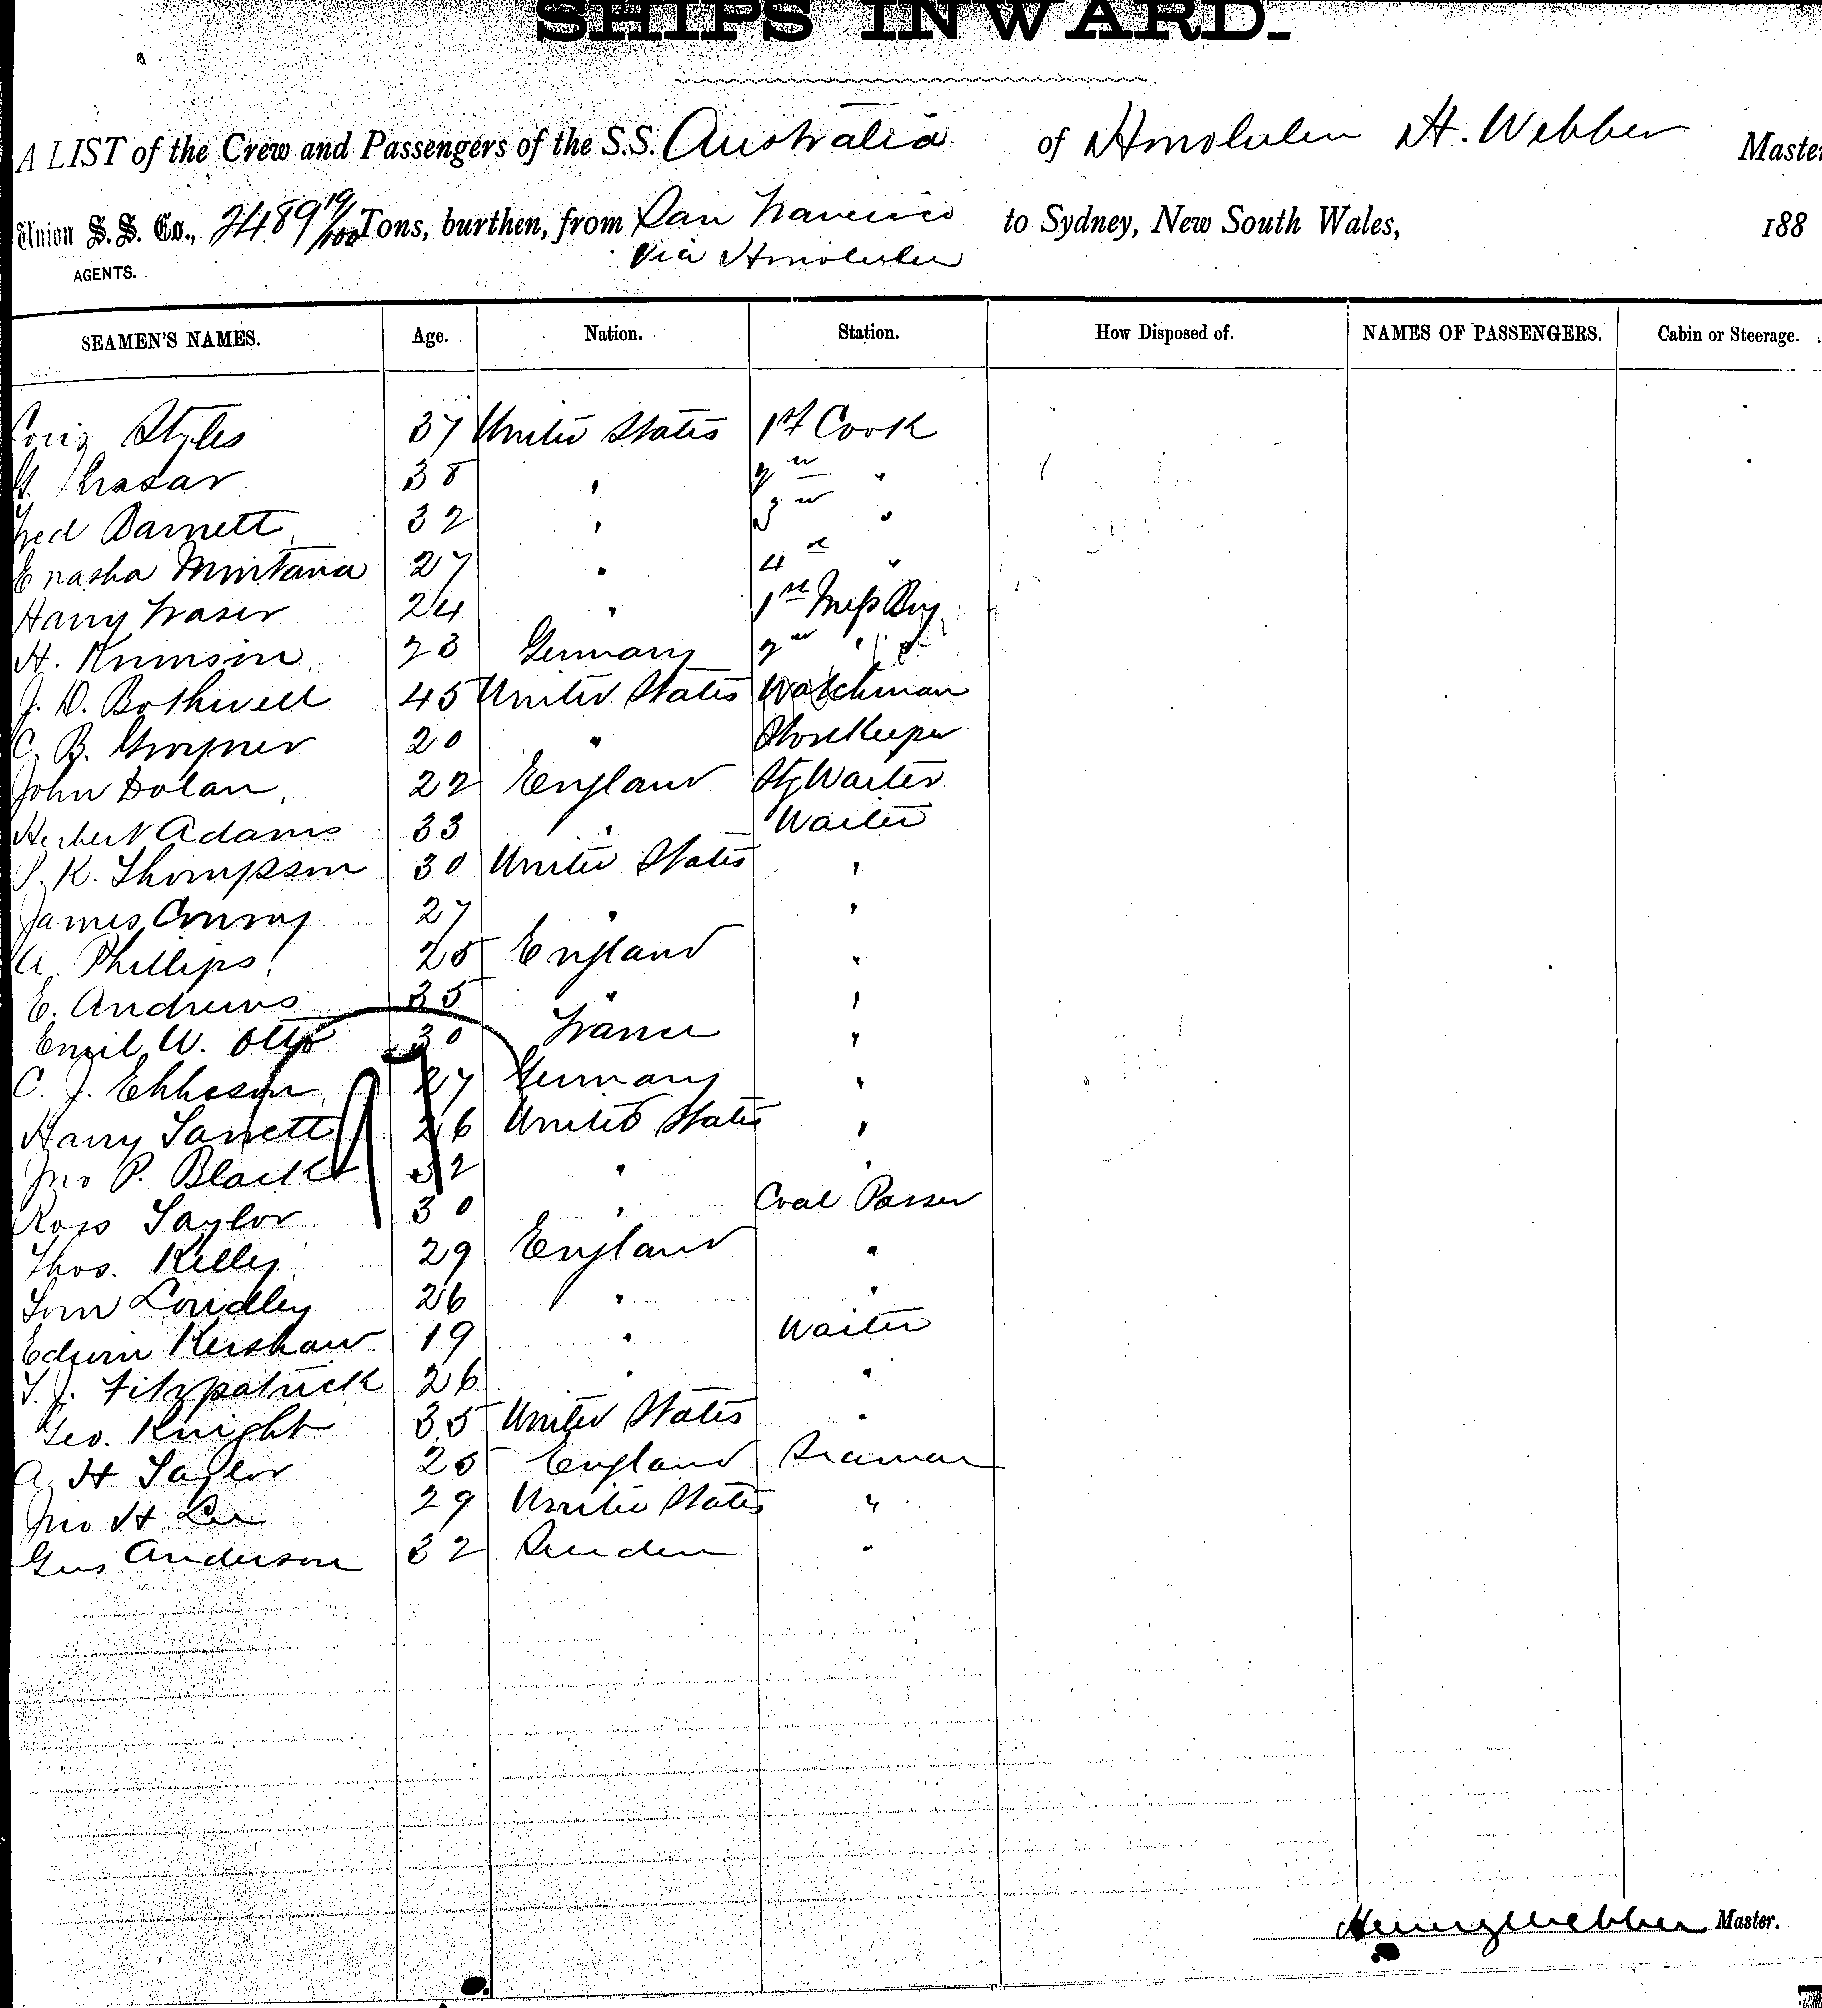 SHIPS INWARD.
A LIST of the Crew and Passengers of the S.S. Australia of Honolulu H. Webber Master
Union S. S. Co., 2489 19/100 Tons, burthen, from San Francisco to Sydney, New South Wales, 188
AGENTS. Via Honolulu
SEAMEN'S NAMES. Age. Nation. Station. How Disposed of. NAMES OF PASSENGERS. Cabin or Steerage.
Styles 37 United States 1st Cook
38 " 2nd "
Fred Barnett 32 " 3rd "
Montana 27 " 4th "
Harry Fraser 24 " 1st Mess Boy
H. 23 Germany 2nd " "
J. D. Bothwell 45 United States Watchman
C. B. 20 " Storekeeper
John Dolan 22 England Stg Waiter
Herbert Adams 33 " Waiter
K. Thompson 30 United States "
James Conroy 27 " "
A. Phillips 25 England "
E. Andrews 35 " "
Emil W. Otto 30 France "
C. J. 27 Germany "
Harry 26 United States "
Jno P. Black 32 " "
Ross Taylor 30 " Coal Passer
Thos. Kelley 29 England "
Tom 26 " "
Edwin Kershaw 19 " Waiter
T. J. Fitzpatrick 26 " "
Geo. Knight 35 United States "
A. H Taylor 25 England Seaman
Jno H Lee 29 United States "
Gus Anderson 32 Sweden "
Henry Webber Master.